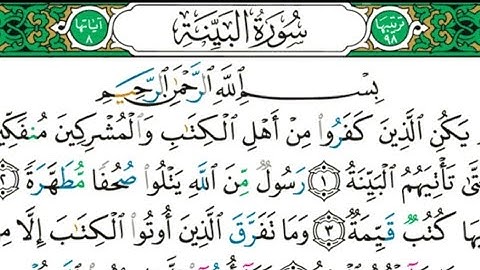 ترتيبها ٩٨
سُورَةُ الْبَيِّنَةِ
آياتها ٨
بِسْمِ اللَّهِ الرَّحْمَٰنِ الرَّحِيمِ
يَكُنِ الَّذِينَ كَفَرُوا مِنْ أَهْلِ الْكِتَٰبِ وَالْمُشْرِكِينَ مُنفَكِّينَ
تَأْتِيَهُمُ الْبَيِّنَةُ ﴿١﴾ رَسُولٌ مِّنَ اللَّهِ يَتْلُوا صُحُفًا مُّطَهَّرَةً ﴿٢﴾
كُتُبٌ قَيِّمَةٌ ﴿٣﴾ وَمَا تَفَرَّقَ الَّذِينَ أُوتُوا الْكِتَٰبَ إِلَّا